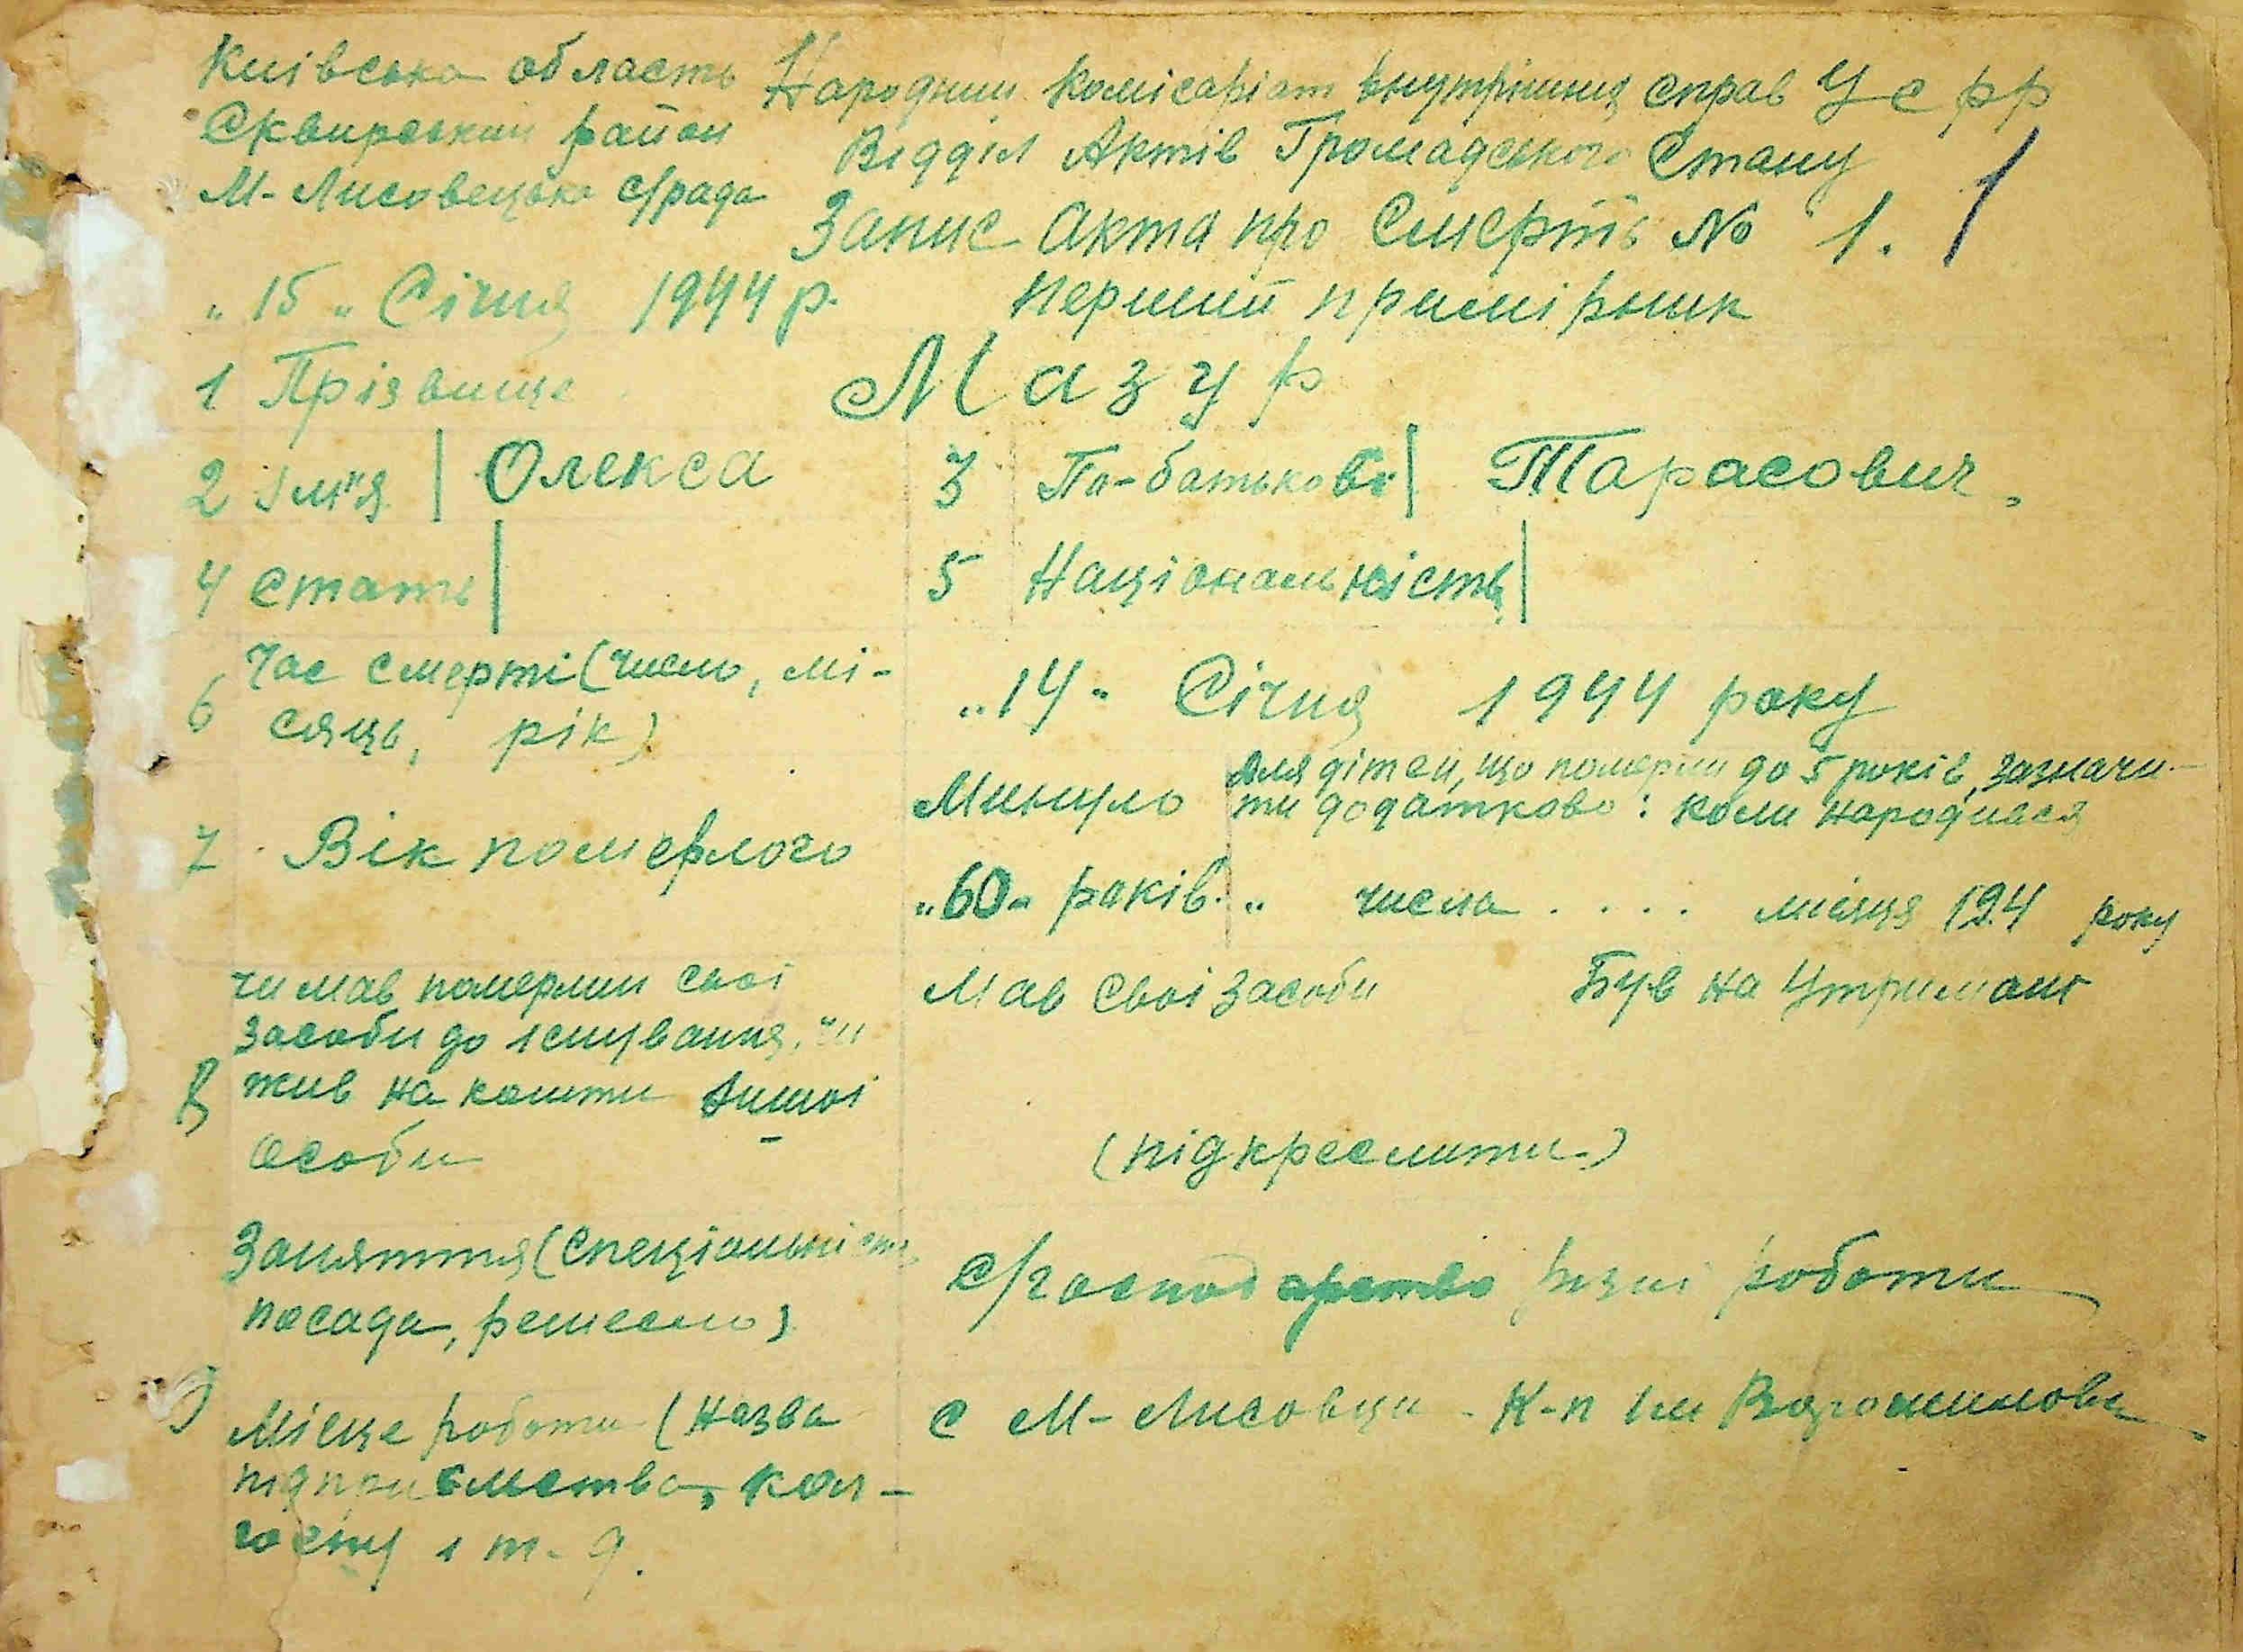 Київська область
Сквирський район
М-Лисовецька с/рада
Народний Комісаріат внутрішніх справ УСРР
Відділ Актів Громадського Стану
Запис Акта про Смерть № 1. 1
"15" Січня 1944 р.
перший примірник
1 Прізвище Мазур
2 Ім'я Олекса 3 По-батькові Тарасович
4 стать 5 Національність
6 Час смерті (число, мі-
сяць, рік)
"14" Січня 1944 року
7 Вік померлого
Минуло
"60" років
для дітей, що померли до 5 років, зазначи-
ти додатково: коли народився
" числа . . . . місяця 194 року
8 чи мав померлий свої
засоби до існування, чи
жив на кошти іншої
особи
Мав свої засоби Був на Утримані
(підкреслити)
Заняття (Спеціальність
посада, ремесло)
с/господарство різні роботи
9 Місце роботи (назва
підприємства, кол-
госпу і т. д.
с М-Лисовці К-п Ім Ворошилова